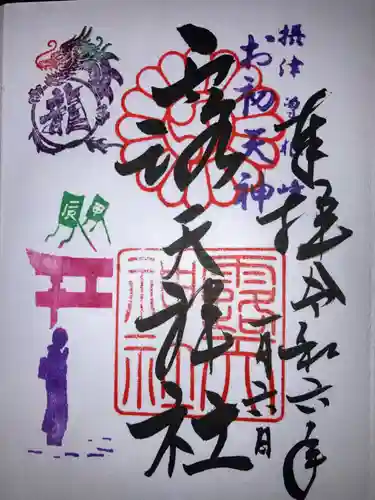 摂津 曽根崎
お初天神
奉拝 令和六年
一月六日
露天神社
露天神社
龍
甲
辰